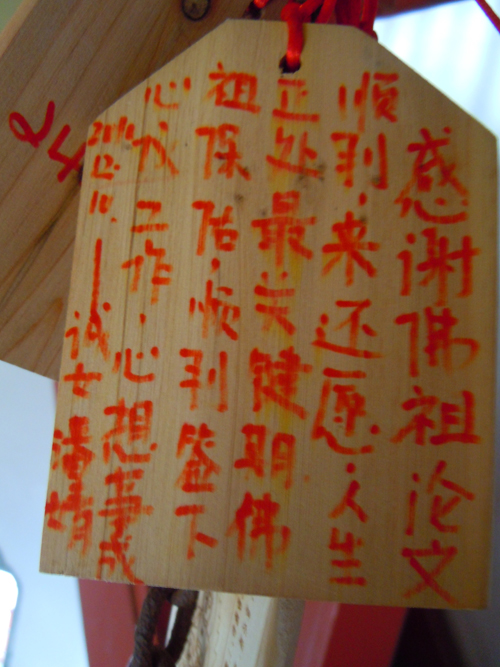 感谢佛祖论文
顺利,来还愿,人生
正处最关键期,佛
祖保佑,顺利签下
心仪工作,心想事成
2011.12.10.——诚女
24